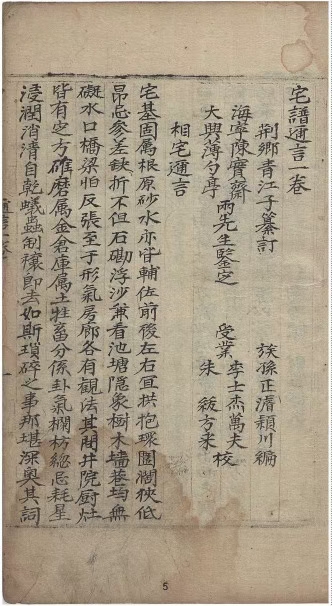 宅譜邇言一卷
荆鄉青江子纂訂 族孫正潽穎川編
海寧陳實齋
大興薄夕亭 兩先生鑒定 受業 李士杰萬夫
朱紱方來 校
相宅邇言
宅基固屬根原砂水亦皆輔佐前後左右宜拱抱環圍濶狹低
昂忌參差缺折不但石磡浮沙兼看池塘隱象樹木墻巷均無
礙水口橋梁怕反張至于形氣房廊各有觀法其間井院厨灶
皆有定方碓磨屬金倉庫属土牲畜分係卦氣欄枋總忌耗星
浸潤消清自乾蟻蟲制禳即去如斯瑣碎之事那堪深奧其詞
5